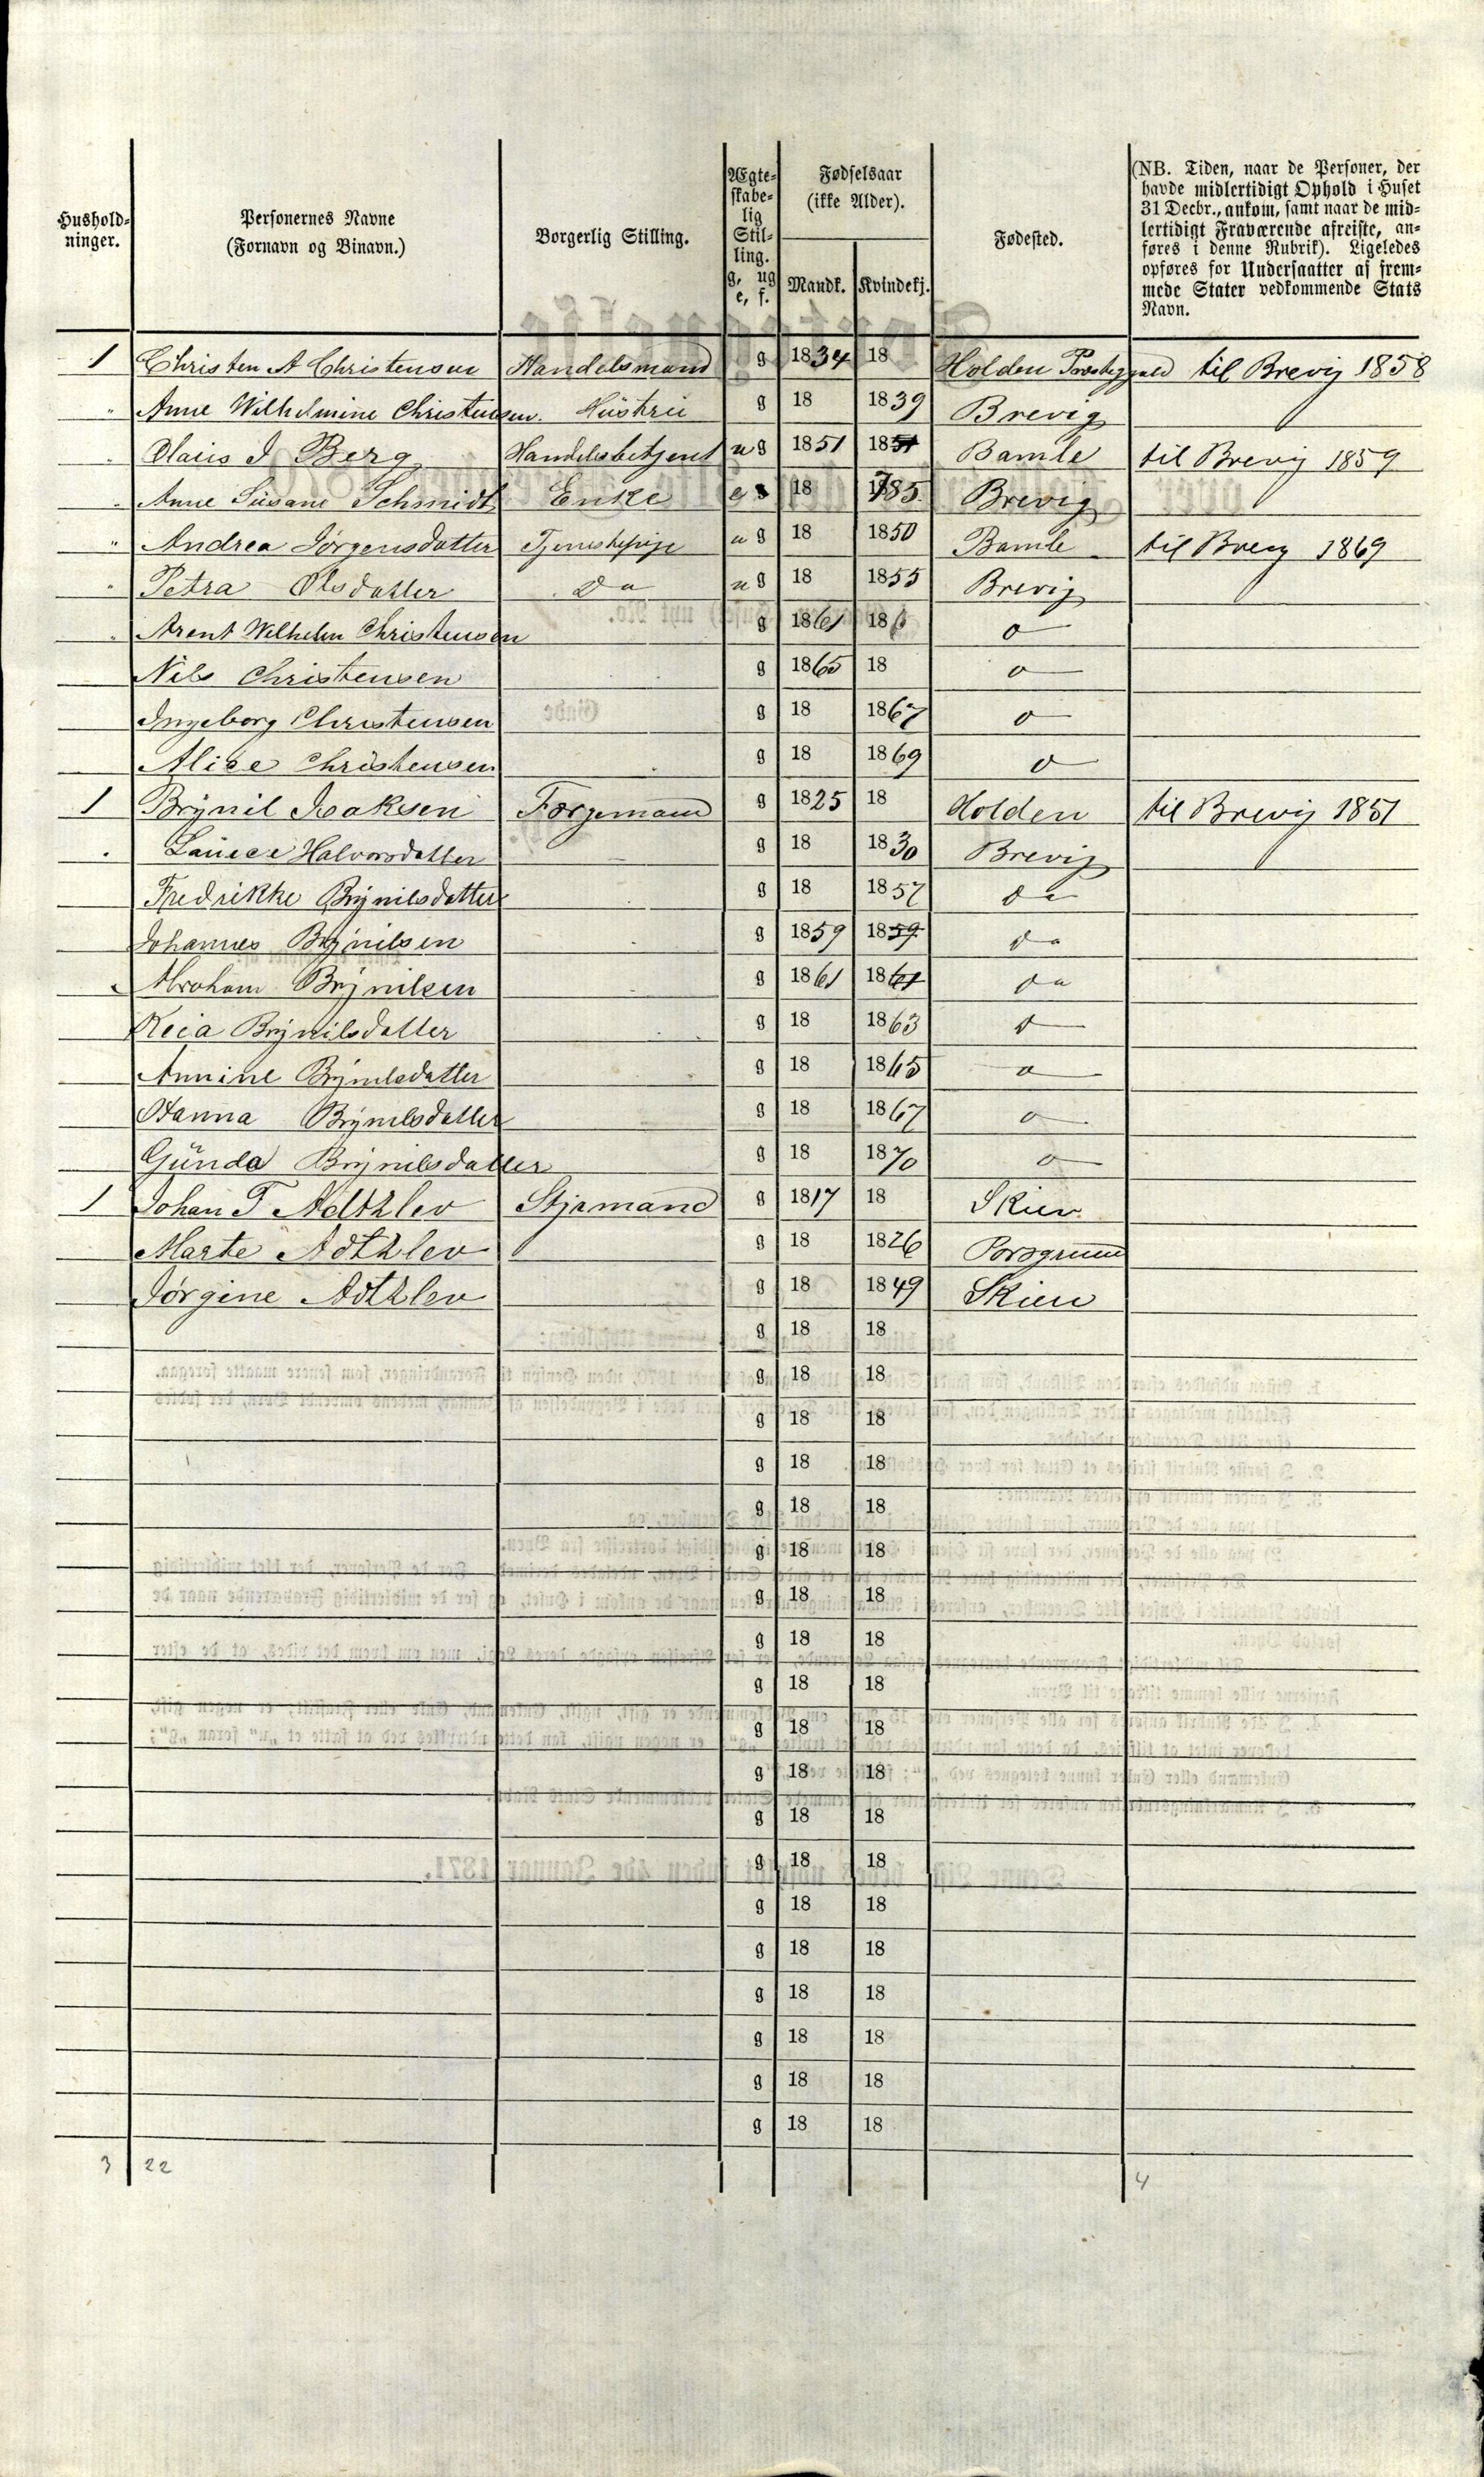 Hushold-
ninger.
Personernes Navne
(Fornavn og Binavn.)
Borgerlig Stilling.
Ægte-
skabe-
lig
Stil-
ling.
g, ug
e, f.
Fødselsaar
(ikke Alder).
Mandk. Kvindekj.
Fødested.
(NB. Tiden, naar de Personer, der
havde midlertidigt Ophold i Huset
31 Decbr., ankom, samt naar de mid-
lertidigt Fraværende afreiste, an-
føres i denne Rubrik). Ligeledes
opføres for Undersaatter af frem-
mede Stater vedkommende Stats
Navn.
1 Christen A Christensen Handelsmand g 1834 18 Holden Præstegjæld til Brevig 1858
" Anne Wilhelmine Christensen Hüstrü g 18 1839 Brevig
" Olaüs J Berg Handelsbetjent ug 1851 1851 Bamle til Brevig 1859
" Anne Süsane Schmidt Enke e g 18 1785 Brevig
" Andrea Jørgensdatter Tjenestepige ug 18 1850 Bamle til Brevig 1869
" Petra Olsdatter Do ug 18 1855 Brevig
" Arent Wilhelm Christensen g 1861 186 o
Nils Christensen g 1865 18 o
Ingeborg Christensen g 18 1867 o
Alice Christensen g 18 1869 o
1 Brÿnil Isaksen Færgemand g 1825 18 Holden til Brevig 1851
Halvorsdatter g 18 1830 Brevig
Fredrikke Brÿnilsdatter g 18 1857 do
Johannes Brÿnilsen g 1859 1859 do
Abraham Brÿnilsen g 1861 1861 do
Brÿnilsdatter g 18 1863 d
Annine Brÿnilsdatter g 18 1865 o
Hanna Brÿnilsdatter g 18 1867 o
Günda Brÿnilsdatter g 18 1870 o
1 Johan T Adtzlev Stÿrmand g 1817 18 Skien
Marte Adtzlev g 18 1826 Porsgrund
Jørgine Adtzlev g 18 1849 Skien
g 18 18
g 18 18
g 18 18
g 18 18
g 18 18
g 18 18
g 18 18
g 18 18
g 18 18
g 18 18
g 18 18
g 18 18
g 18 18
g 18 18
g 18 18
g 18 18
g 18 18
g 18 18
g 18 18
3 22 4